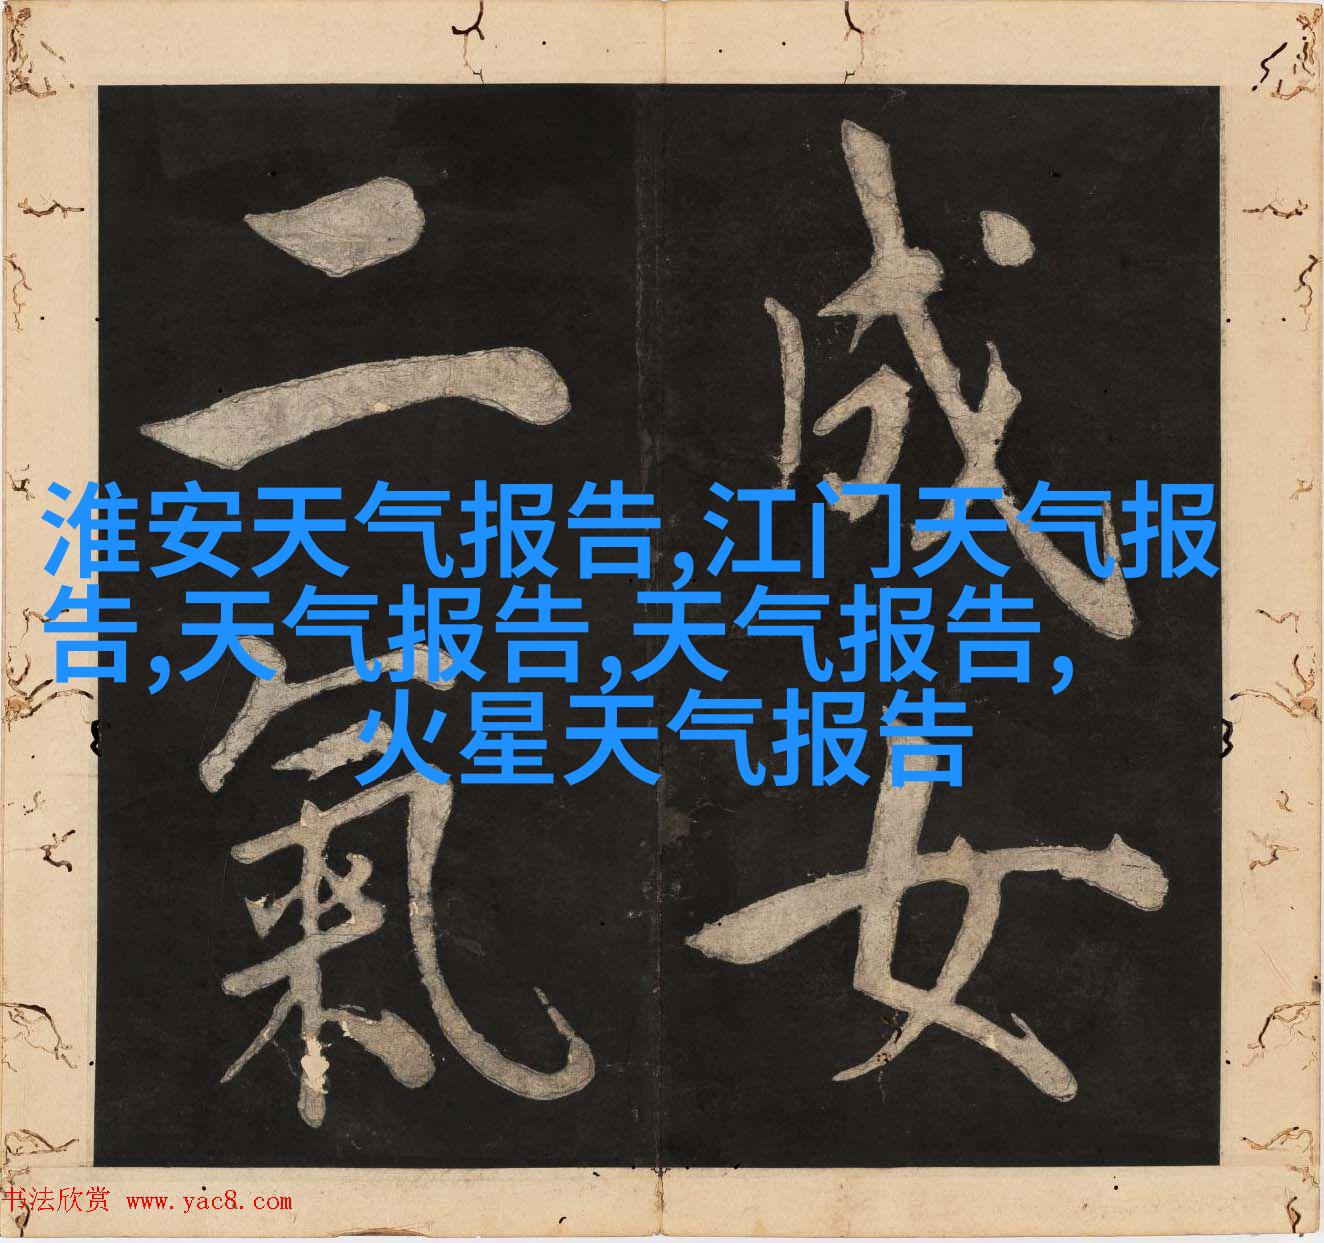 成女
二氣
淮安天气报告,江门天气报
告,天气报告,天气报告,
火星天气报告
书法欣赏 www.yac8.com